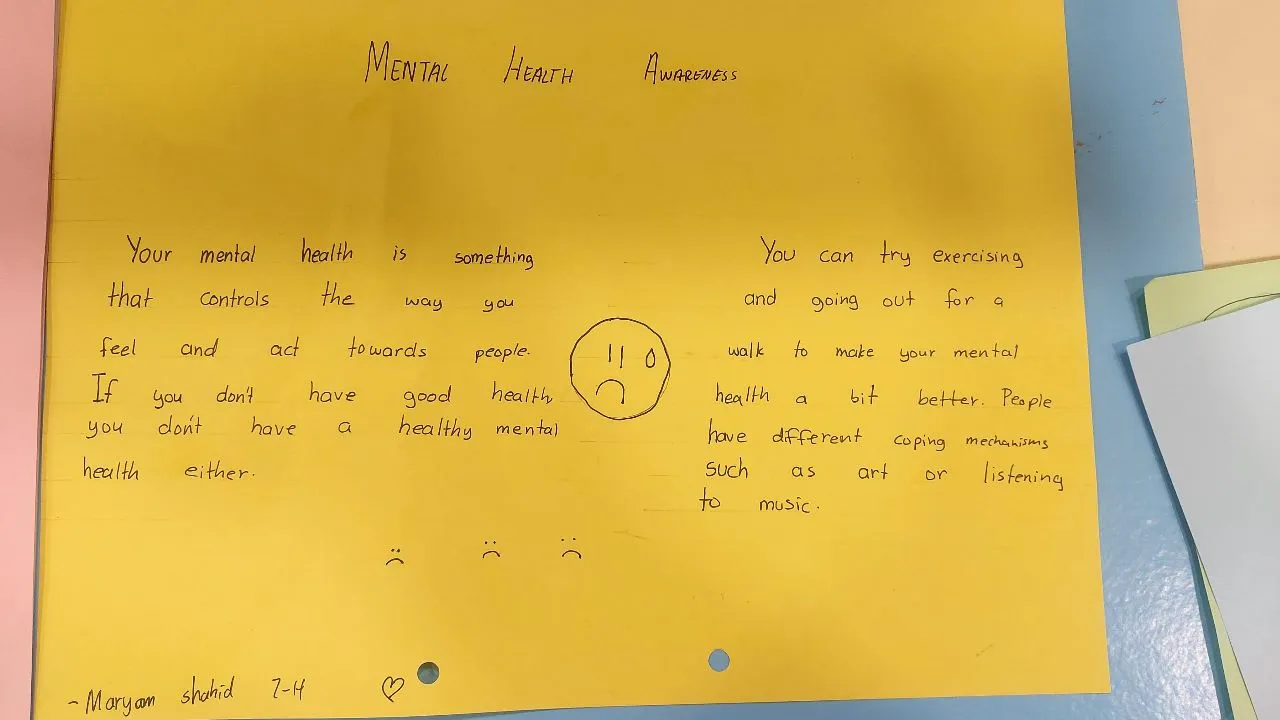 MENTAL HEALTH AWARENESS
Your mental health is something
that controls the way you
feel and act towards people.
If you don't have good health
you don't have a healthy mental
health either.
You can try exercising
and going out for a
walk to make your mental
health a bit better. People
have different coping mechanisms
such as art or listening
to music.
-Maryam shahid 7-H